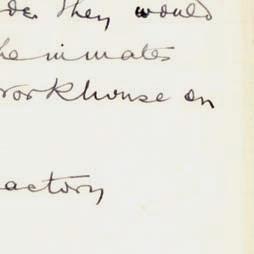 de. They would
he inmates
workhouse on
actory